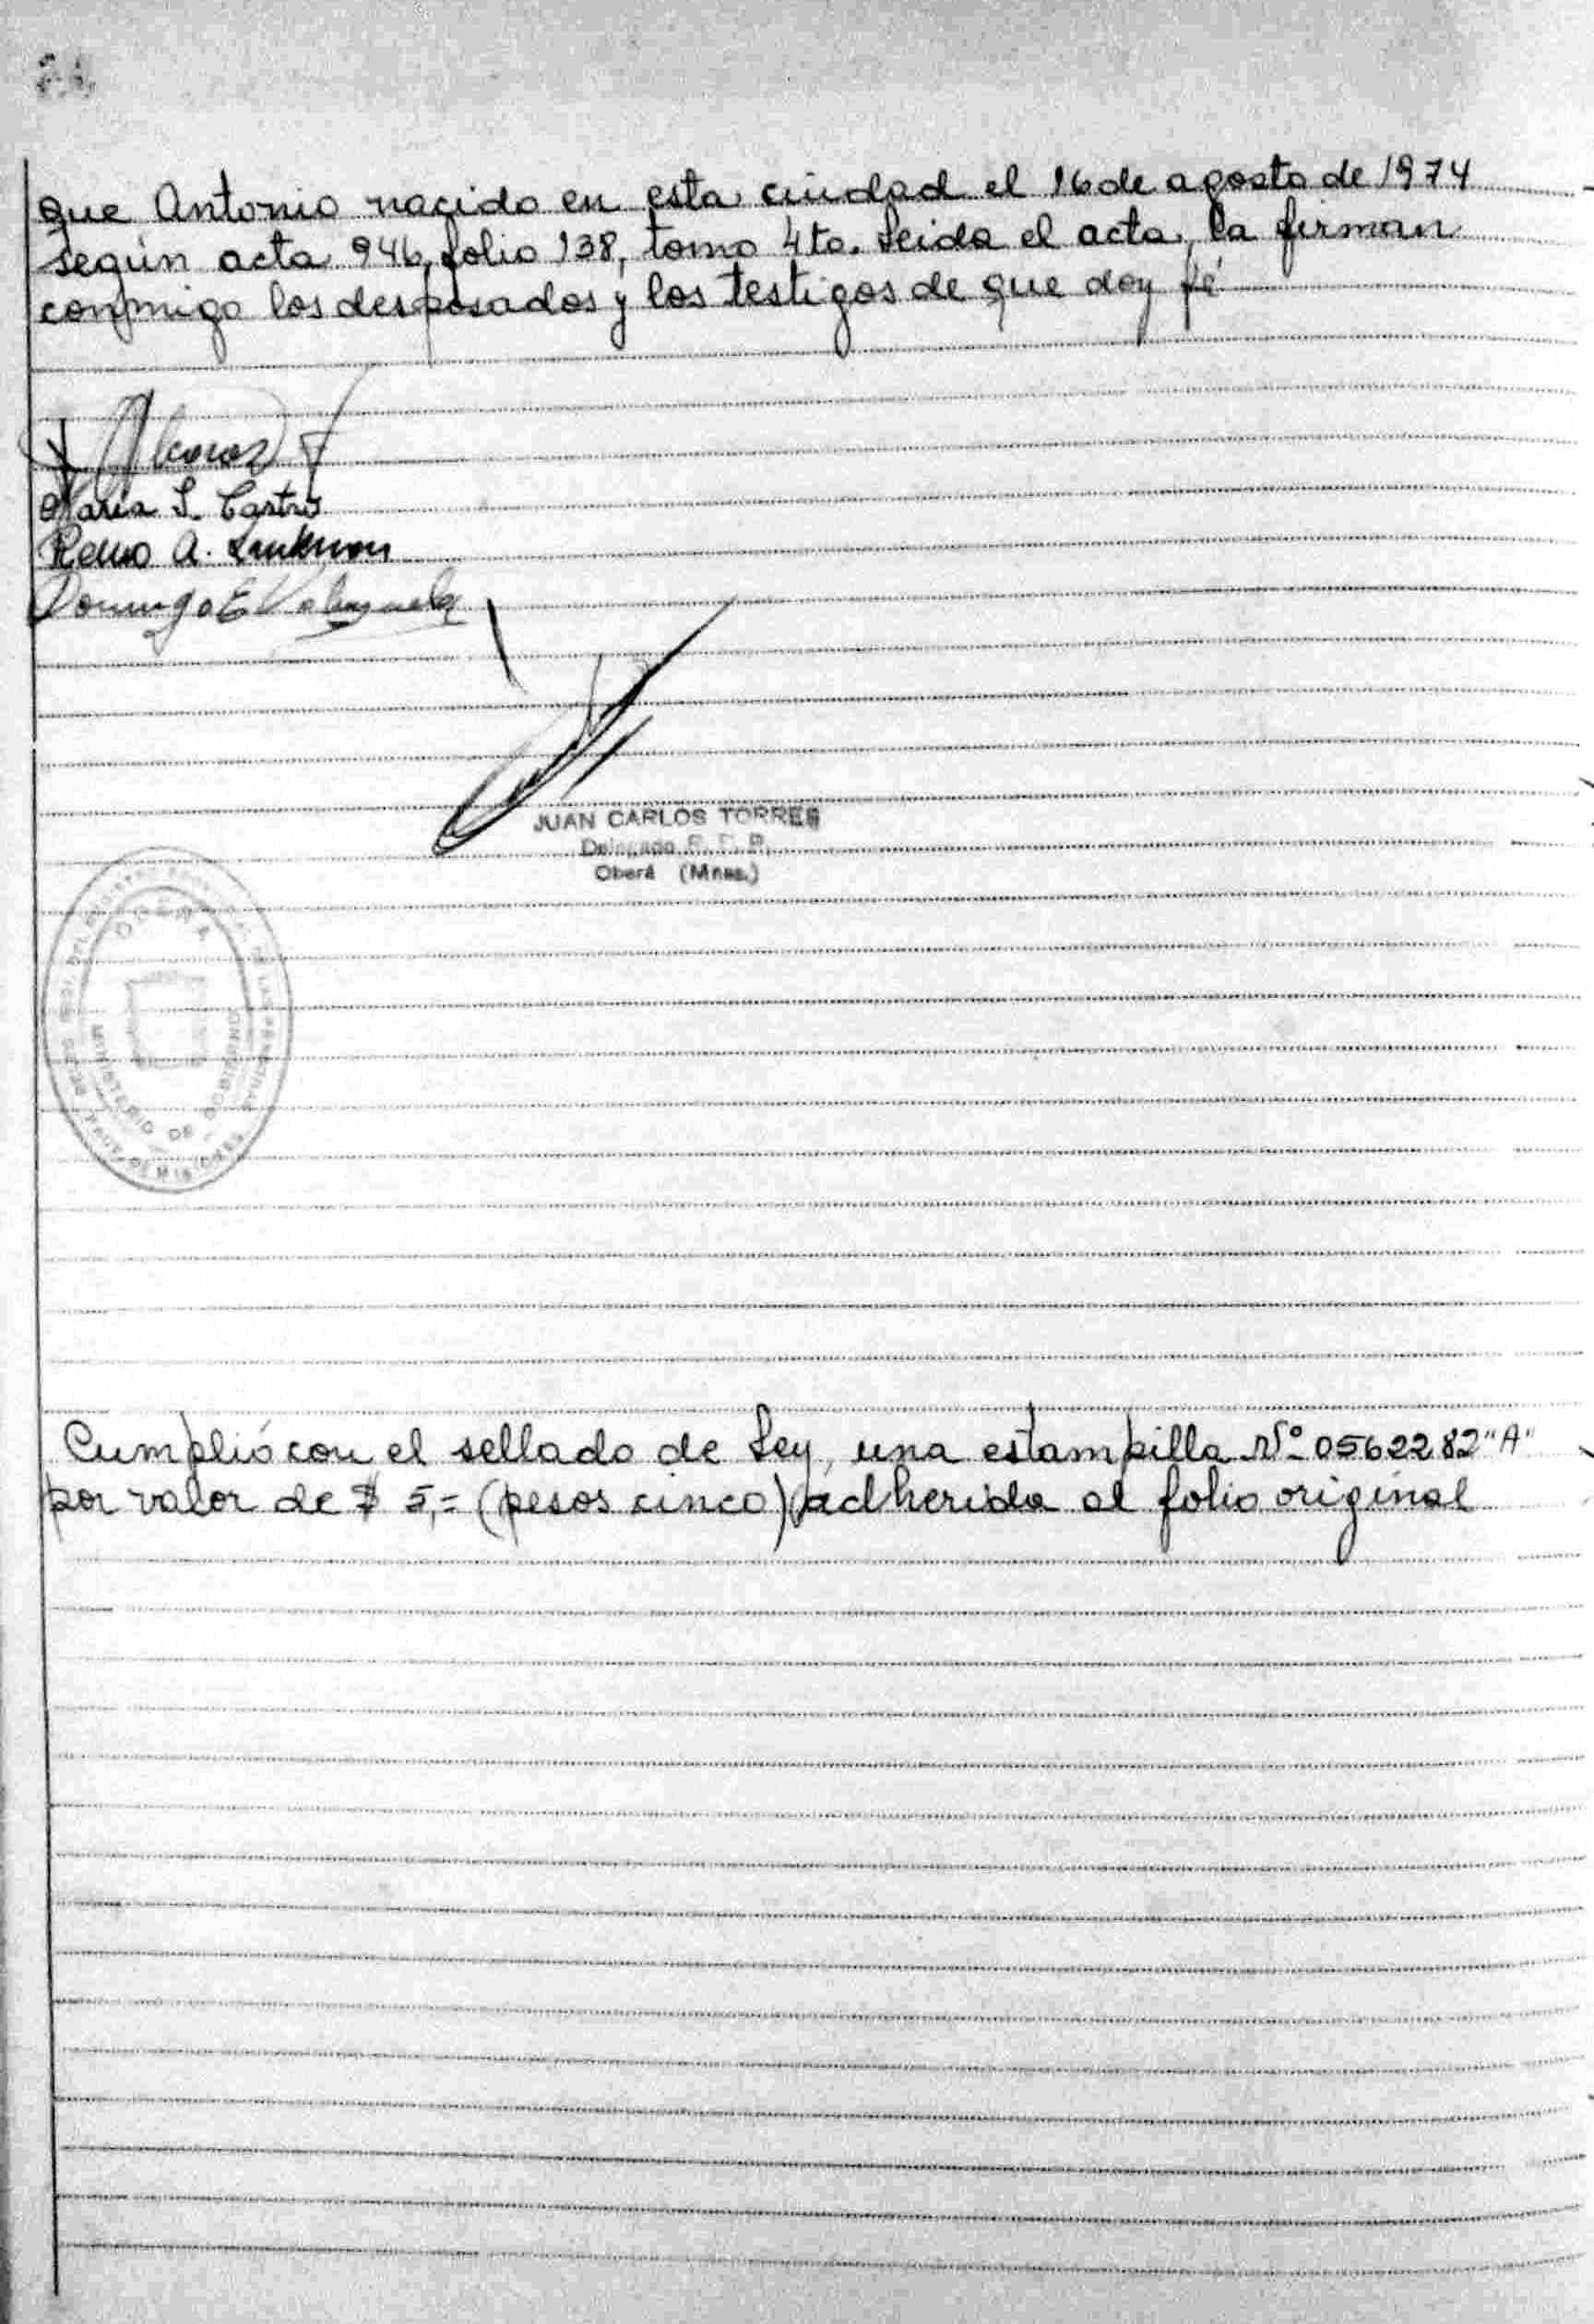 que Antonio nacido en esta ciudad el 16 de agosto de 1974
según acta 946, folio 138, tomo 4to. Leida el acta, la firman
conmigo los desposados y los testigos de que doy fé
María S. Castro
Pedro A.
Domingo E Valenzuela
JUAN CARLOS TORRES
Delegado R. P. P.
Oberá (Mnes.)
OBERA
MINISTERIO DE GOBIERNO
PROV. DE MISIONES
Cumplió con el sellado de Ley, una estampilla Nº 0562282 "A"
por valor de $ 5,= (pesos cinco) adherida al folio original